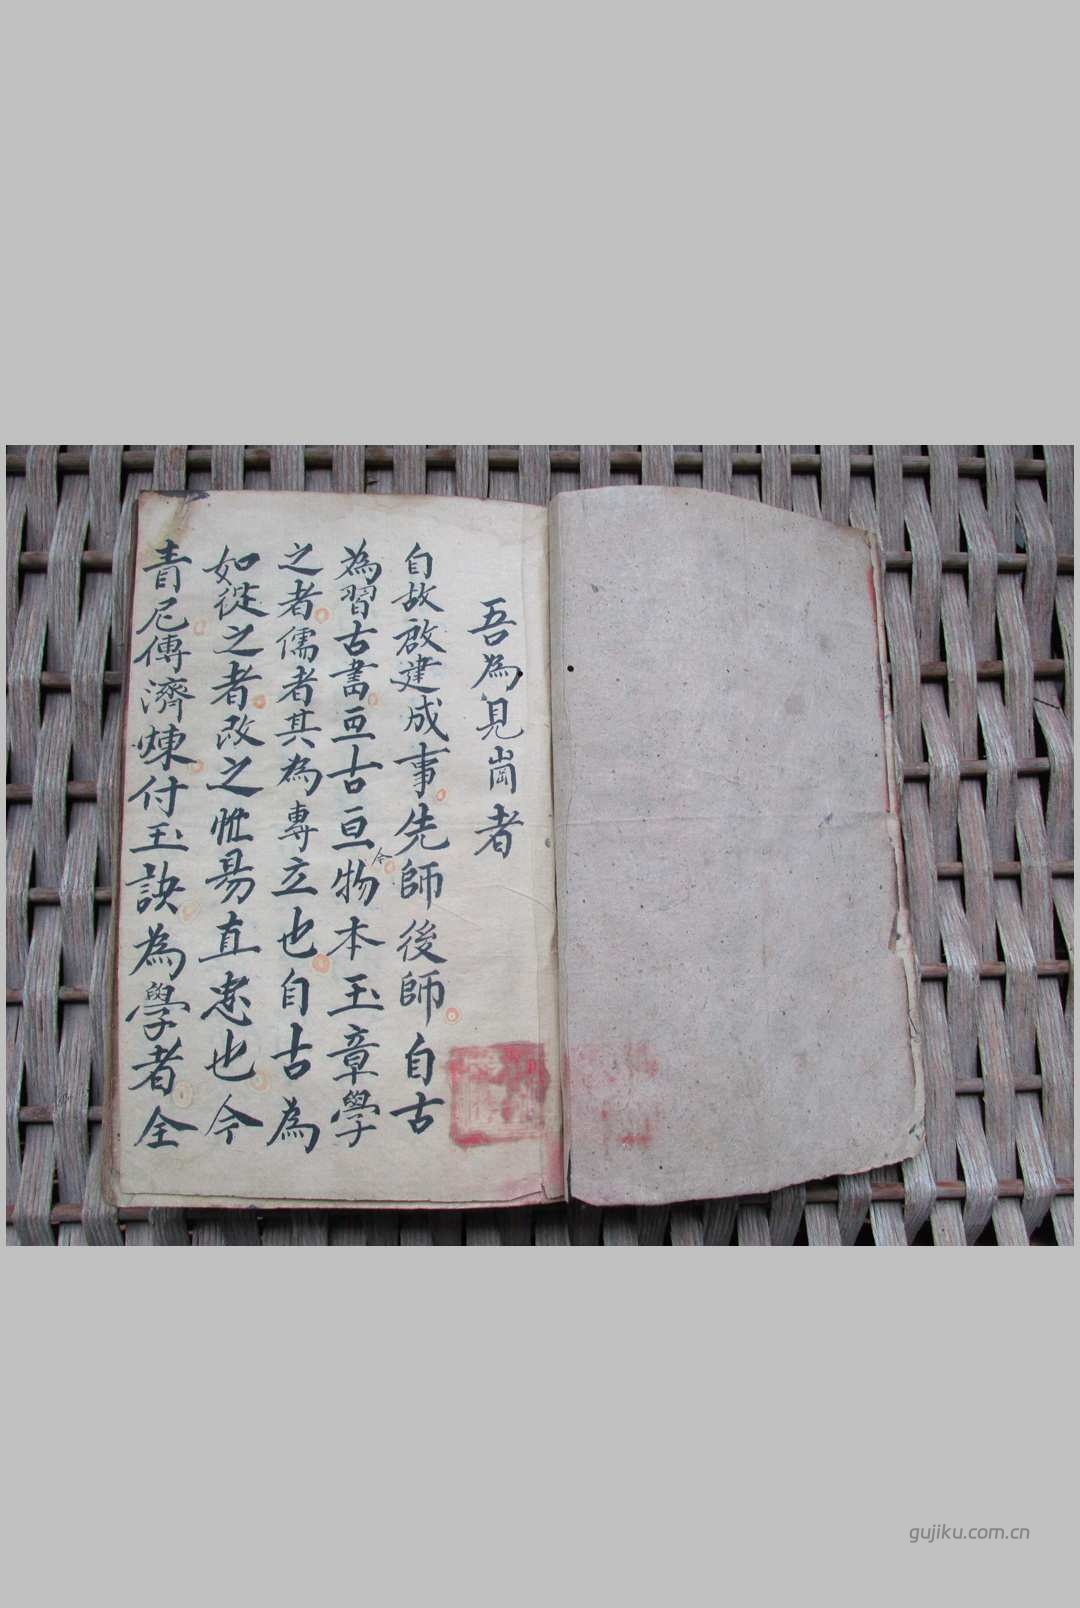 吾為見崗者
自故啟建成事先師後師自古
為習古書亘古亘今物本玉章學
之者儒者其為專立也自古為
如從之者改之惟易直忠也今
青尼傳濟煉付玉訣為學者全
gujiku.com.cn